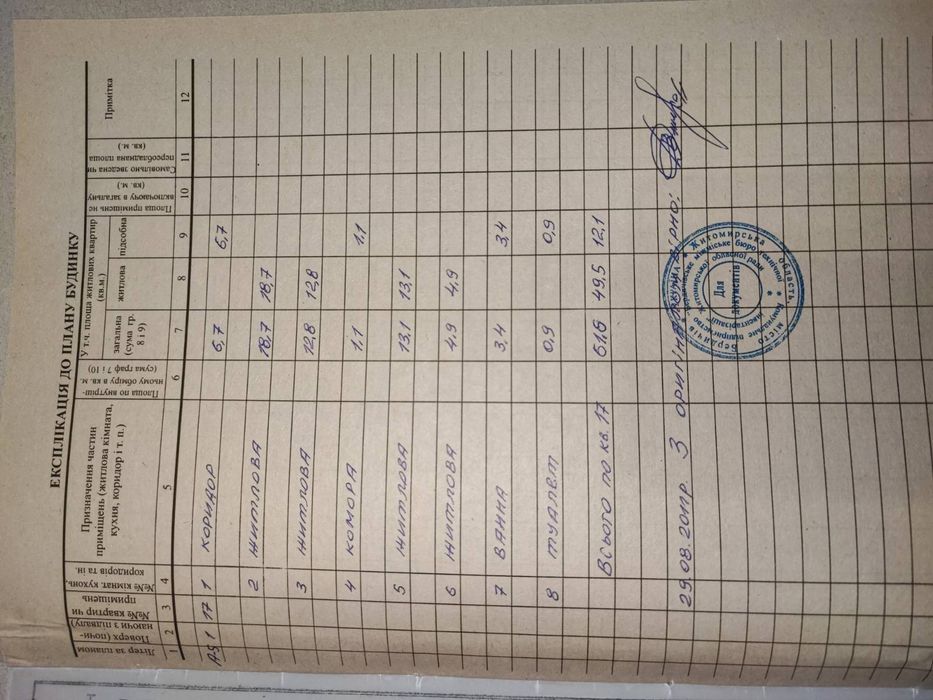 ЕКСПЛІКАЦІЯ ДО ПЛАНУ БУДИНКУ
Літер за планом
Поверх (почи-
наючи з підвалу)
№№ квартир чи
приміщень
№№ кімнат, кухонь,
коридорів та ін.
Призначення частин
приміщень (житлова кімната,
кухня, коридор і т. п.)
Площа по внутріш-
ньому обміру в кв. м.
(сума граф 7 і 10)
У т.ч. площа житлових квартир
(кв.м.)
загальна
(сума гр.
8 і 9)
житлова
підсобна
Площа приміщень не
включаючу в загальну
(кв. м.)
Самовільно зведена чи
переобладнана площа
(кв. м.)
Примітка
1 2 3 4 5 6 7 8 9 10 11 12
17 1 коридор 6,7 6,7
2 житлова 18,7 18,7
3 житлова 12,8 12,8
4 комора 1.1 1.1
5 житлова 13,1 13,1
6 житлова 4,9 4,9
7 ванна 3,4 3,4
8 туалет 0,9 0,9
Всього по кв. 17 61,6 49,5 12,1
29.08.2011р. З оригіналом вірно:
Житомирська область
місто Бердичів
Комунальне підприємство
міжміське бюро технічної інвентаризації
Житомирської обласної ради
Для
документів